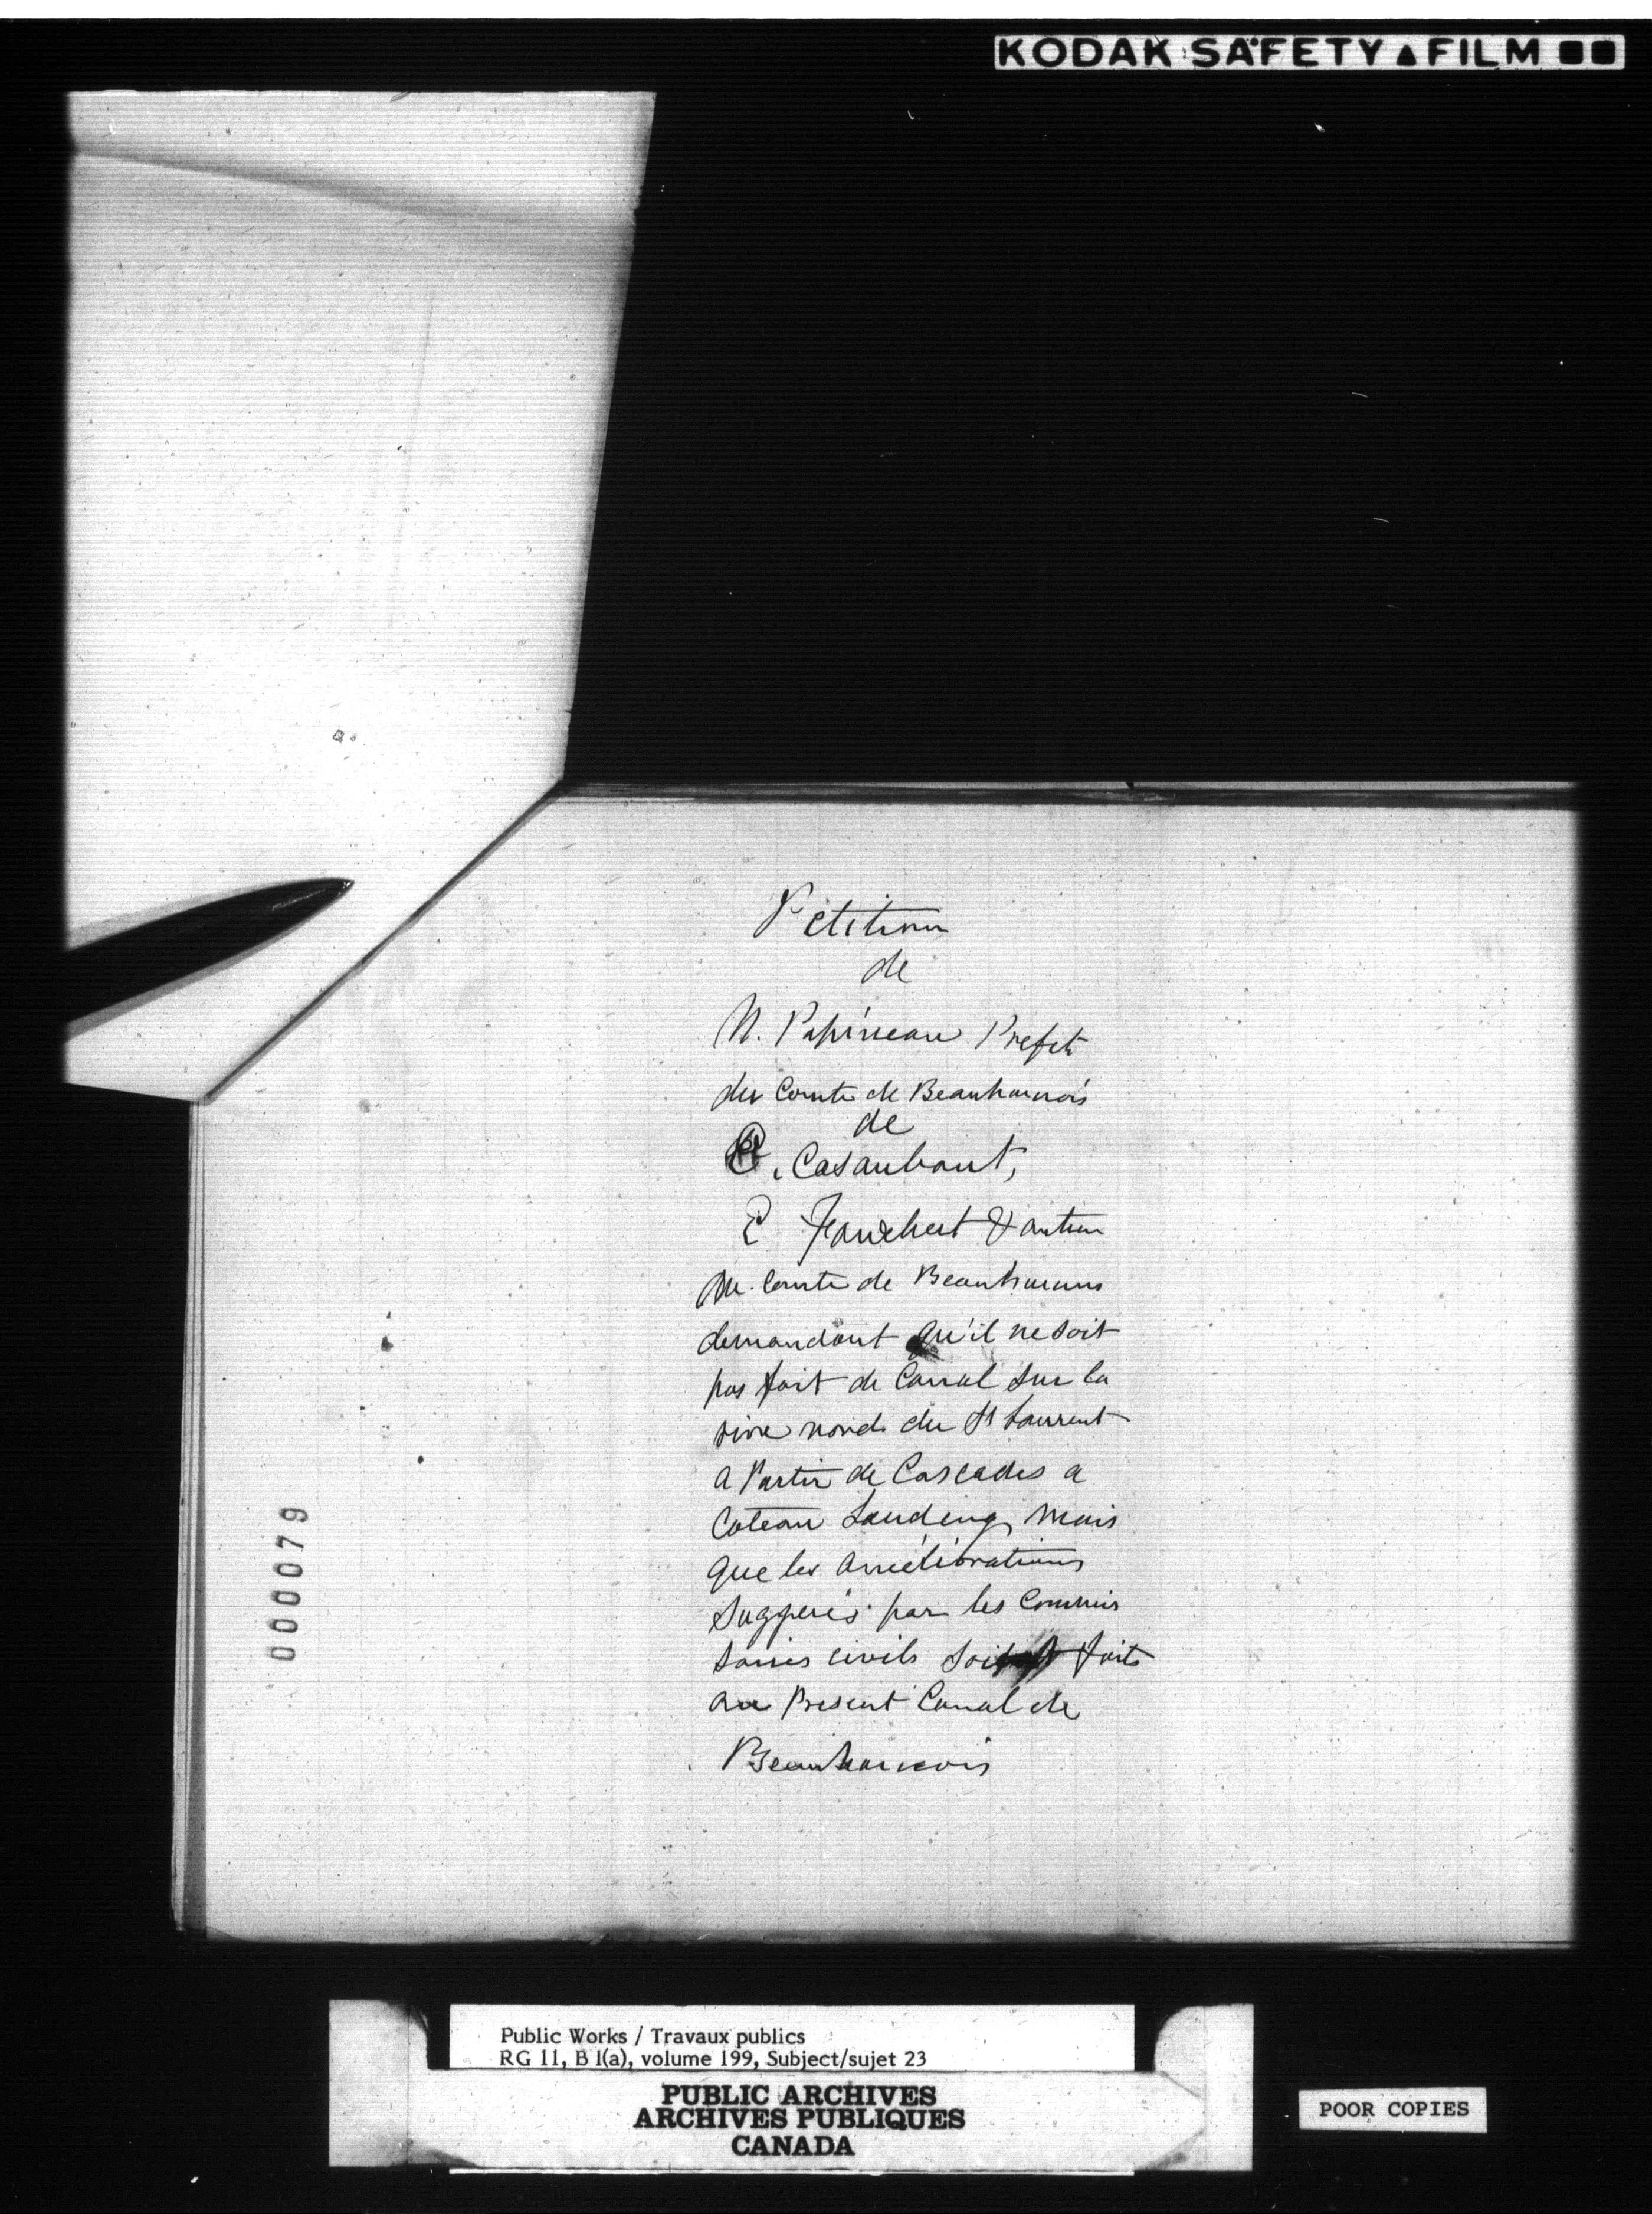 KODAK SAFETY ▲ FILM ■■
Petition
de
N. Papineau Prefet
du Comte de Beauharnois
de
C. Casaubant,
E Fauchert & autres
du Comte de Beauharnois
demandant qu'il ne soit
pas fait de Canal sur la
rive nord du St Laurent
a Partir de Cascades a
Coteau Landing, mais
que les améliorations
suggerés par les Commis
saires civils soit faits
au Present Canal de
Beauharnois
000079
Public Works / Travaux publics
RG 11, B 1(a), volume 199, Subject/sujet 23
PUBLIC ARCHIVES
ARCHIVES PUBLIQUES
CANADA
POOR COPIES